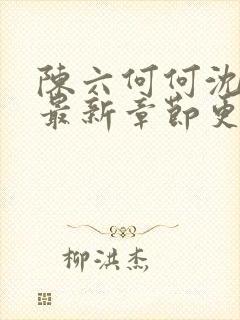 陳六何何沈
最新章節更
柳洪杰